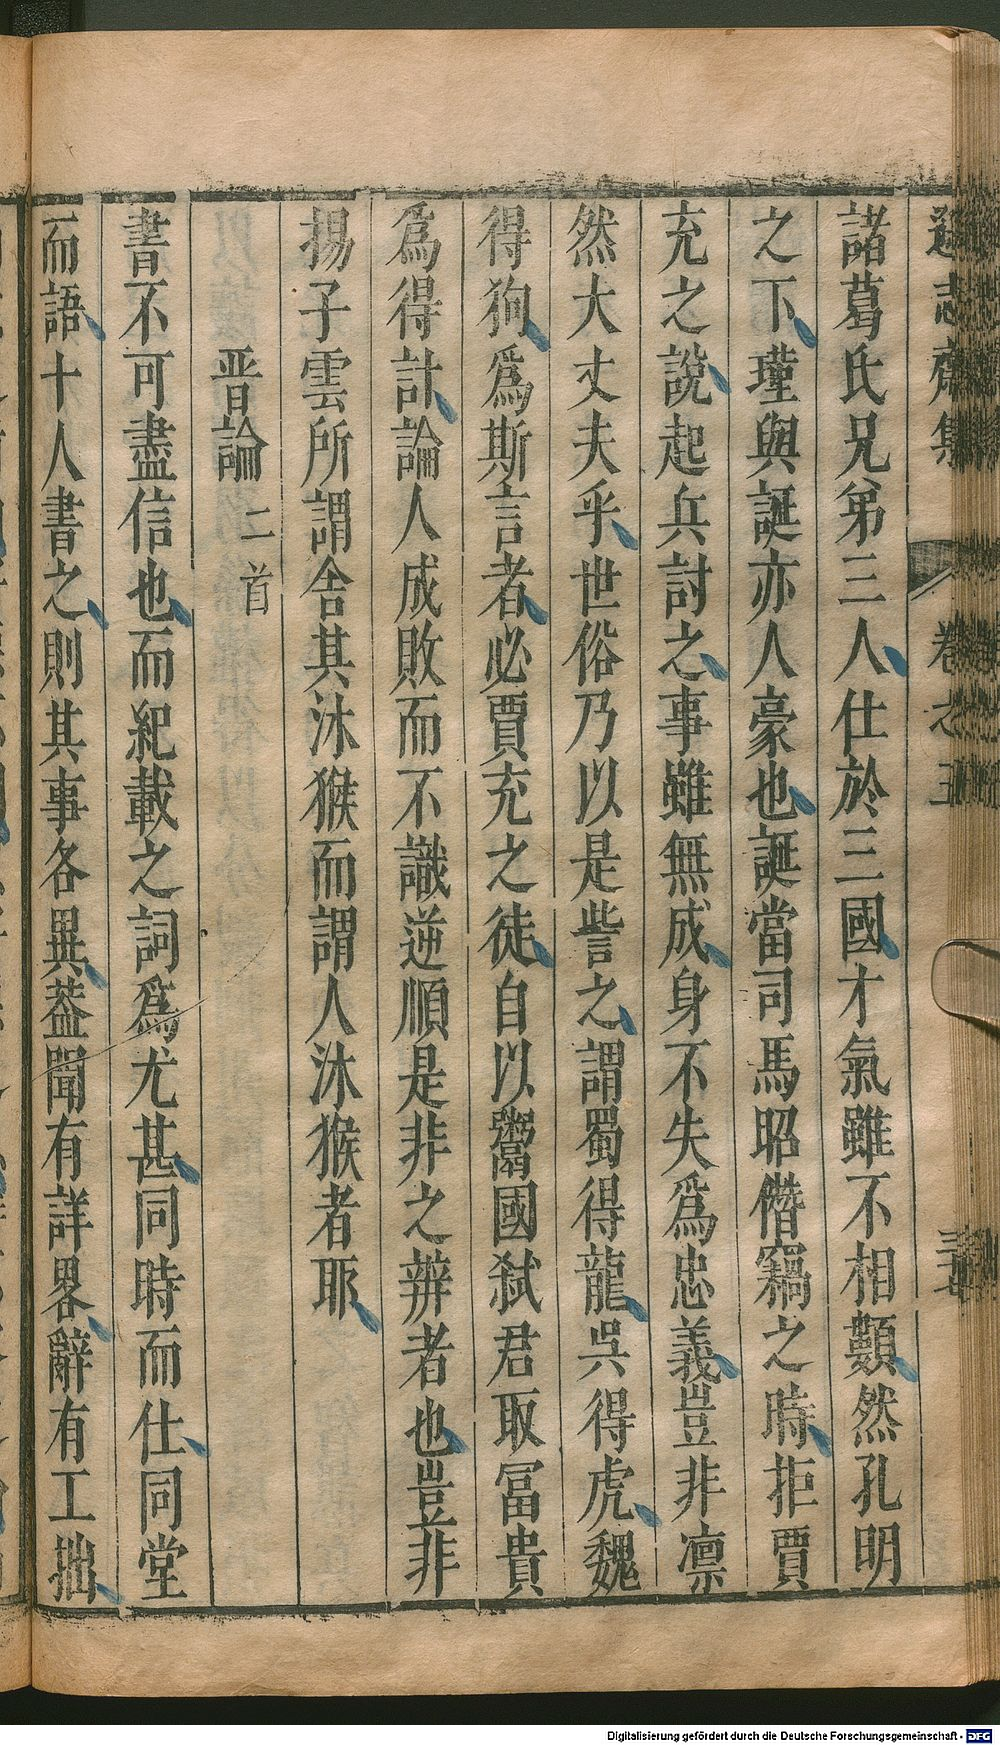 遜志齋集
卷之五
三十七
諸葛氏兄弟三人仕於三國才氣雖不相類然孔明
之下瑾與誕亦人豪也誕當司馬昭僭竊之時拒賈
充之說起兵討之事雖無成身不失爲忠義豈非凜
然大丈夫乎世俗乃以是訾之謂蜀得龍吳得虎魏
得狗爲斯言者必賈充之徒自以鬻國弑君取冨貴
爲得計論人成敗而不識逆順是非之辨者也豈非
揚子雲所謂舎其沐猴而謂人沐猴者耶
晋論 二首
書不可盡信也而紀載之詞爲尤甚同時而仕同堂
而語十人書之則其事各異葢聞有詳畧辭有工拙
Digitalisierung gefördert durch die Deutsche Forschungsgemeinschaft - DFG